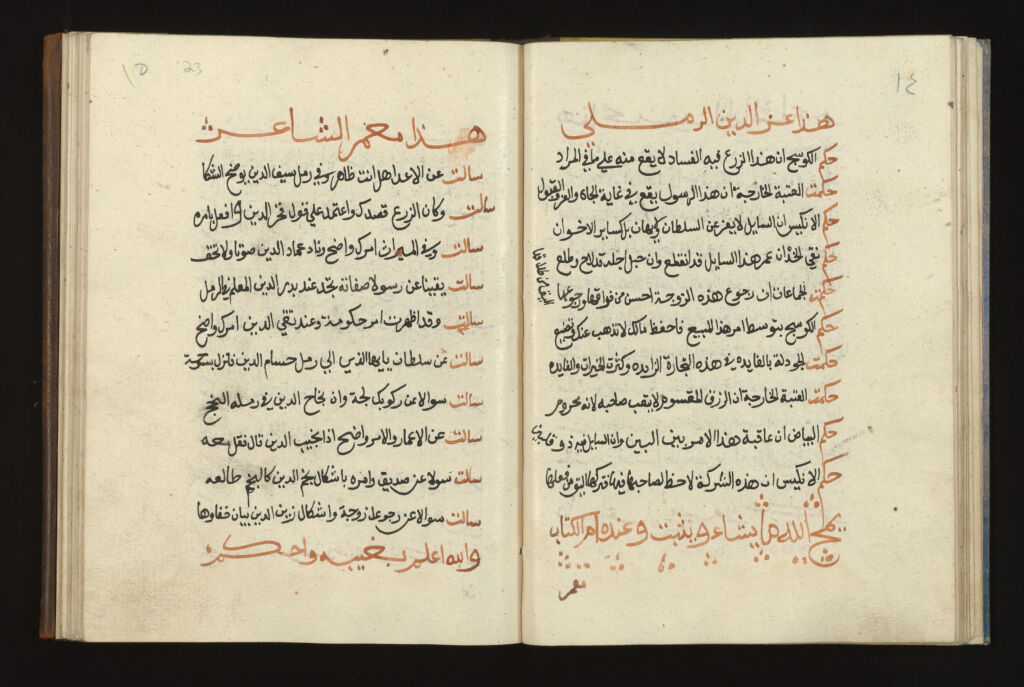 ١٤
هذا عز الدين الرملي
حكم الكوسج ان هذا الزرع فيه الفساد لا يقع منه علي ما في المراد
حكمت العتبة الخارجة ان هذا الرسول يقع في غاية الجاه والعز والقبول
حكم الانكيس ان السايل لا يعز عن السلطان بل كساير الاخوان
حكم نقي الخد ان عمر هذا السايل قد انقطع وان حبل اجله قد لاح وطلع
حكمت الجماعة ان رجوع هذه الزوجة احسن من فراقها ورجوعها
حكم الكوسج بتوسط امر هذا المبيع فاحفظ مالك لا تذهب عنك فيضيع
حكمت الجودلة بالفايده في هذه التجارة الزايده وكثرة الخيرات والفايده
حكمت العتبة الخارجة ان الرزق المقسوم لا يتعب صاحبه لانه محروم
حكم البياض ان عاقبة هذا الامر بين البين وان السايل فيه ذو
حكم الانكيس ان هذه الشركة لاحظ لصاحبها فيها
يمح الله ما يشاء ويثبت وعنده ام الكتاب
معمر
15 23
هذا معمر الشاعر
سالت عن الاعدا هل انت ظاهر وفي رمل سيف الدين يوضح الشكا
سالت وكان الزرع قصدك واعتمد علي قول فخر الدين وافعل بامره
سالت وفي الميراث امرك واضح وناد عماد الدين صوتا ولا تخف
سالت يقينا عن رسولا صفاته تجد عند بدر الدين المعلم في الرمل
سالت وقد اظهرت امر حكومة وعند تقي الدين امرك واضح
سالت عن سلطان يا يها الذي الي رمل حسام الدين فانزل بسوحة
سالت سوالا عن ركوبك لجة وان نجاح الدين في رمله النجح
سالت عن الاعمار والامر واضح اذا نجيب الدين قال فقل معه
سالت سولا عن صديق وامره باشكال نجم الدين كالنجم طالعه
سالت سوالا عن رجوع لزوجة واشكال زين الدين بيان خفاوها
والله اعلم بغيبه واحكم